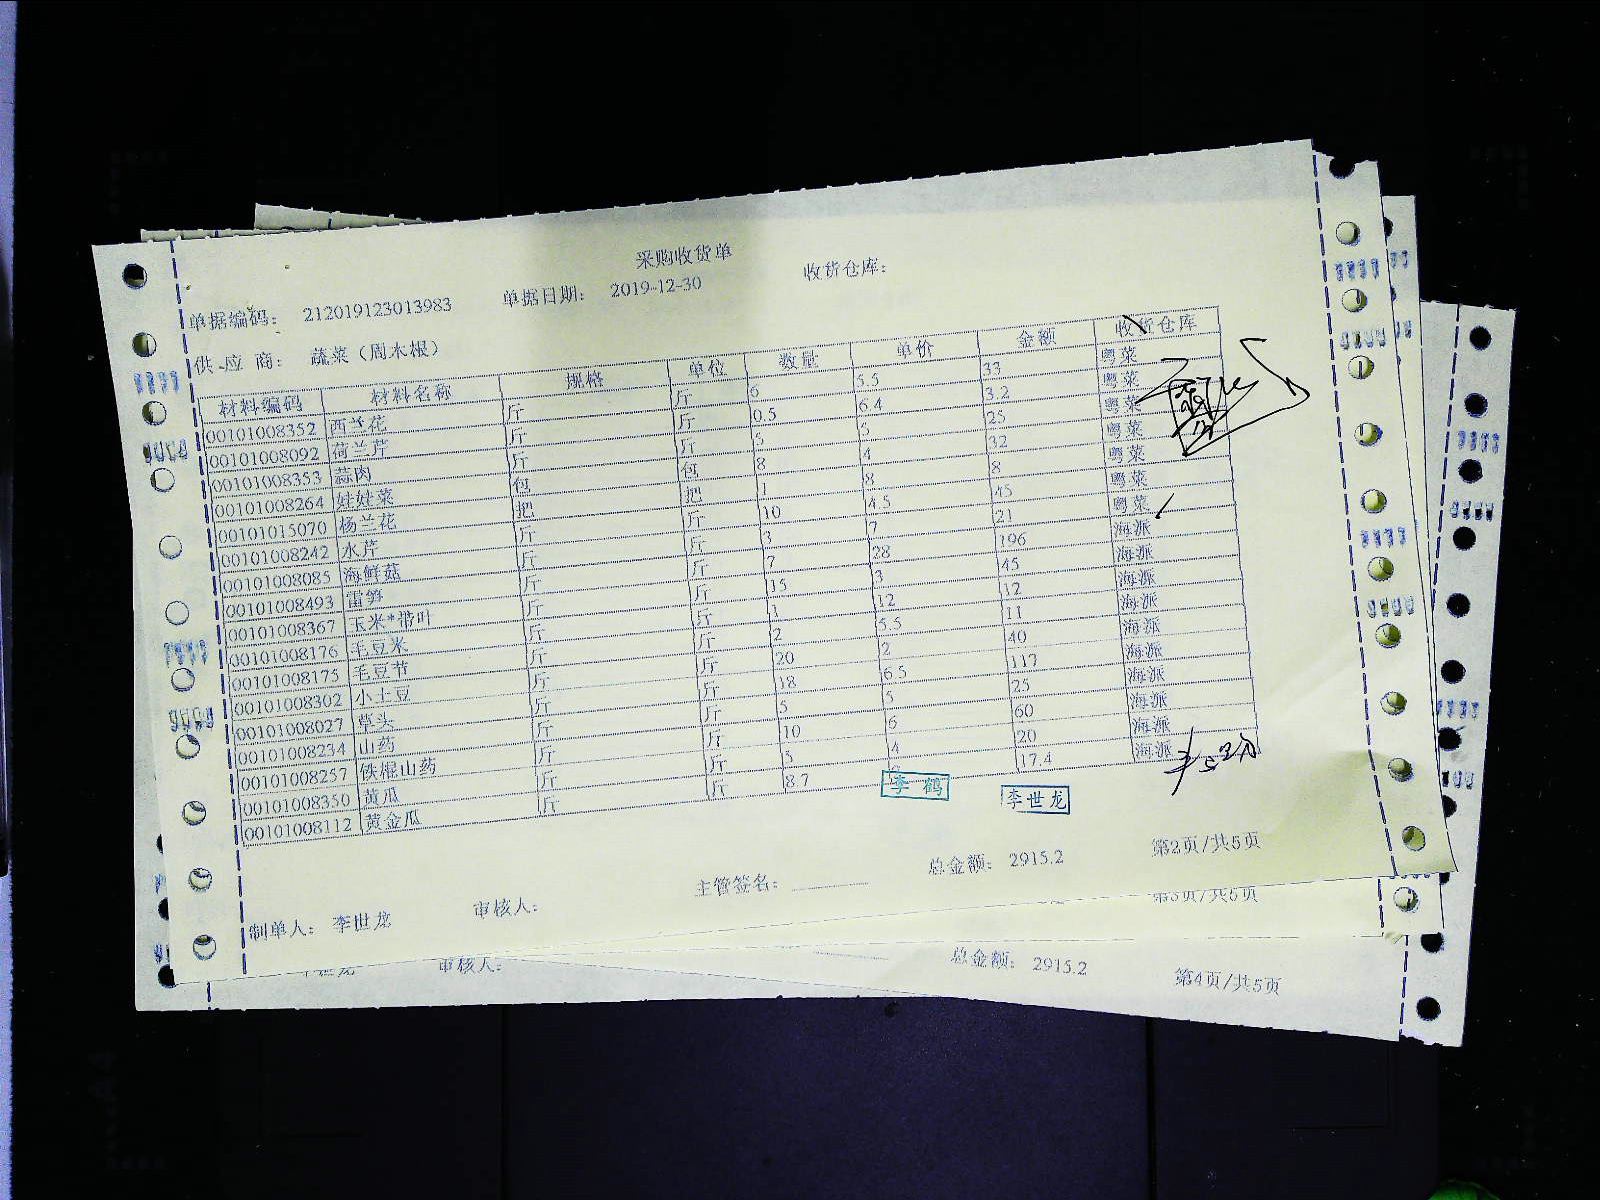 采购收货单
单据编码: 212019123013983 单据日期: 2019-12-30 收货仓库:
供应商: 蔬菜(周木根)
材料编码 材料名称 规格 单位 数量 单价 金额 收货仓库
00101008352 西兰花 斤 斤 6 5.5 33 粤菜
00101008092 荷兰芹 斤 斤 0.5 6.4 3.2 粤菜
00101008353 蒜肉 斤 斤 5 5 25 粤菜
00101008264 娃娃菜 包 包 8 4 32 粤菜
00101015070 杨兰花 把 把 1 8 8 粤菜
00101008242 水芹 斤 斤 10 4.5 45 粤菜
00101008085 海鲜菇 斤 斤 3 7 21 粤菜
00101008493 雷笋 斤 斤 7 28 196 海派
00101008367 玉米*带叶 斤 斤 15 3 45 海派
00101008176 毛豆米 斤 斤 1 12 12 海派
00101008175 毛豆节 斤 斤 2 5.5 11 海派
00101008302 小土豆 斤 斤 20 2 40 海派
00101008027 草头 斤 斤 18 6.5 117 海派
00101008234 山药 斤 斤 5 5 25 海派
00101008257 铁棍山药 斤 斤 10 6 60 海派
00101008350 黄瓜 斤 斤 5 4 20 海派
00101008112 黄金瓜 斤 斤 8.7 17.4 海派
李鹤 李世龙
主管签名: 总金额: 2915.2 第2页/共5页
制单人: 李世龙 审核人:
第3页/共5页
审核人: 总金额: 2915.2 第4页/共5页